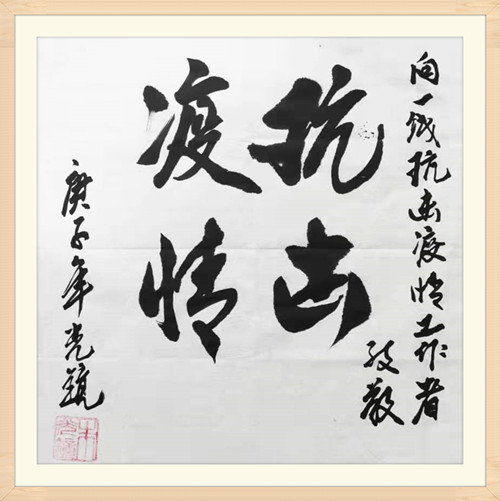 向一线抗击疫情工作者
致敬
抗击
疫情
庚子年光